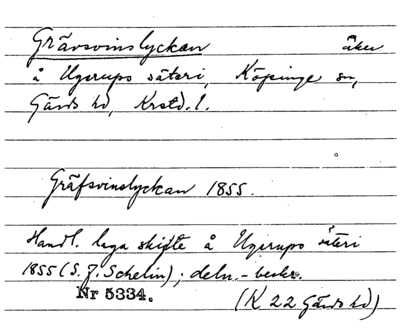 Grävsvinslyckan åker
å Ugerups säteri, Köpinge sn,
Gärds hd, Krstd. l.
Gräfsvinslyckan 1855.
Handl. laga skifte å Ugerups säteri
1855 (S. J. Schelin); deln.-beskr.
Nr 5334.
(K 22 Gärds hd)